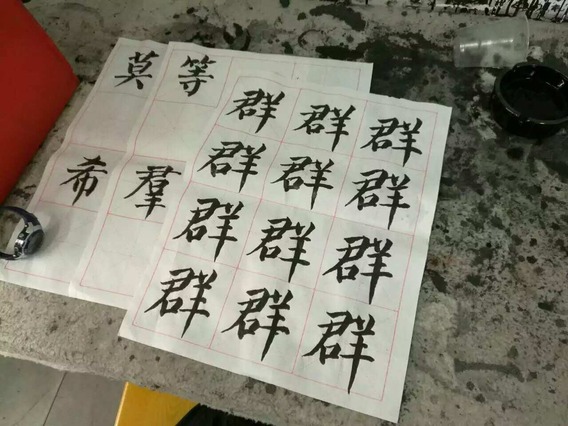 莫 等
希 羣
群 群 群
群 群 群
群 群 群
群 群 群